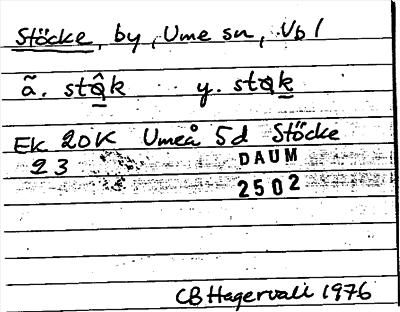 Stöcke, by, Ume sn, Vb l
ã. stɑ̂k y. stɑk
Ek 20K Umeå 5d Stöcke
23
DAUM
2502
CB Hagervall 1976